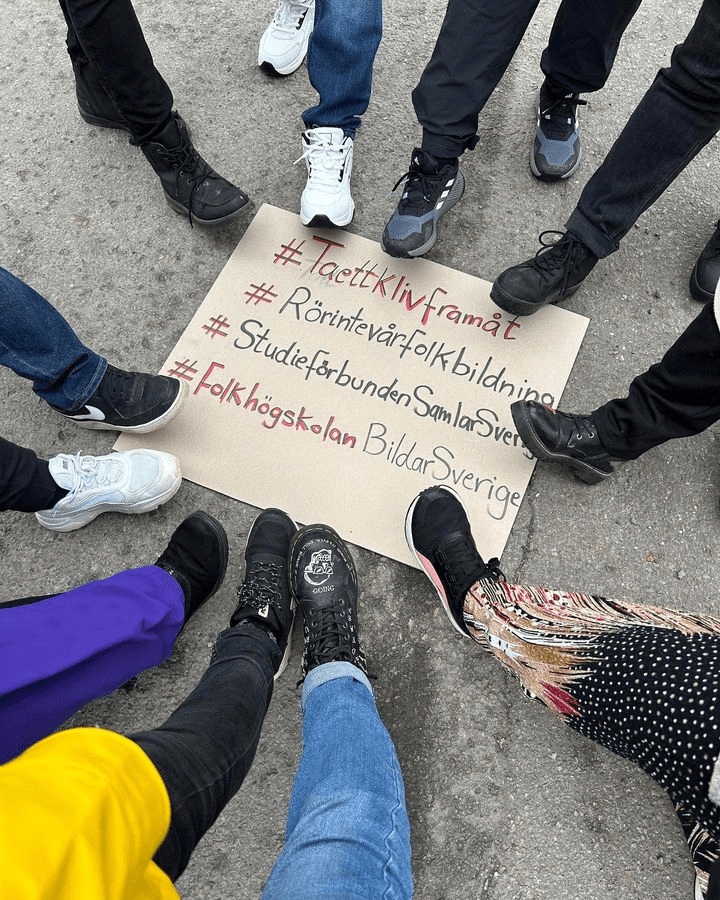 #Taettklivframåt
#Rörintevårfolkbildning
#StudieförbundenSamlarSverig
#Folkhögskolan BildarSverige
GOING